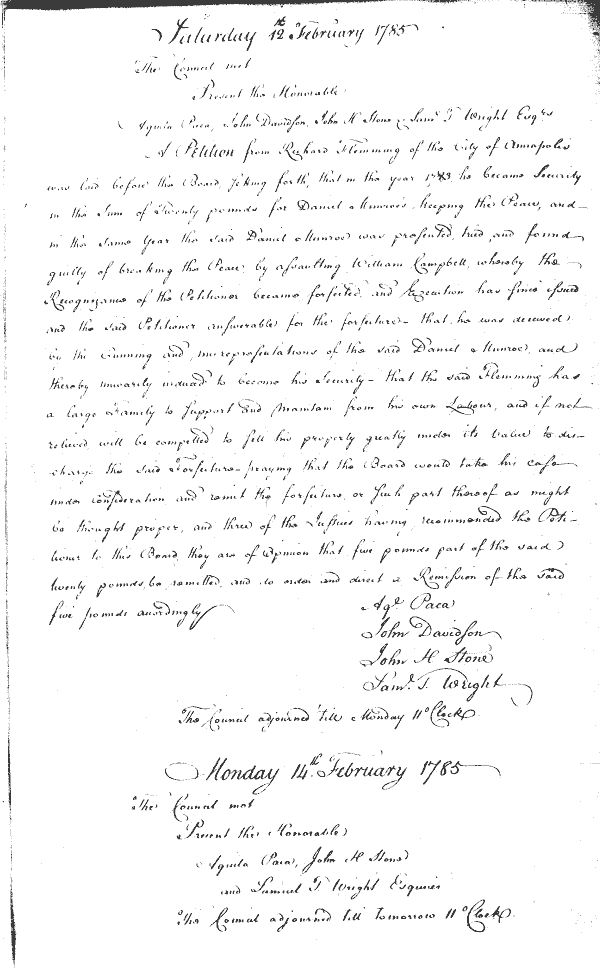 Saturday 12th February 1785
The Council met
Present the Honorable
Aquila Paca, John Davidson, John H Stone & Saml. T Wright Esqrs
A Petition from Richard Flemming of the City of Annapolis
was laid before this Board, setting forth, that in the year 1783 he became Security
in the Sum of Twenty pounds for Daniel Munroe's keeping the Peace, and
in the same Year the said Daniel Munroe was presented, tried, and found
guilty of breaking the Peace by assaulting William Campbell, whereby the
Recognizance of the Petitioner became forfeited, and Execution has since issued
and the said Petitioner answerable for the forfeiture – that he was deceived
by the Cunning and misrepresentations of the said Daniel Munroe, and
thereby unwarily induced to become his Security – that the said Flemming has
a large Family to Support and Maintain from his own Labour, and if not
relieved will be compelled to sell his property greatly under its Value to dis-
charge the said Forfeiture – praying that the Board would take his case
under consideration and remit the forfeiture, or such part thereof as might
be thought proper, and three of the Justices having recommended the Peti-
tioner to this Board, they are of Opinion that five pounds part of the said
twenty pounds be remitted, and do order and direct a Remission of the said
five pounds accordingly
Aqa. Paca
John Davidson
John H Stone
Saml. T. Wright
The Council adjourned 'till Monday 11 o'Clock.
Monday 14th. February 1785
The Council met
Present the Honorable
Aquila Paca, John H Stone
and Samuel T Wright Esquires
The Council adjourned till tomorrow 11 o'Clock.